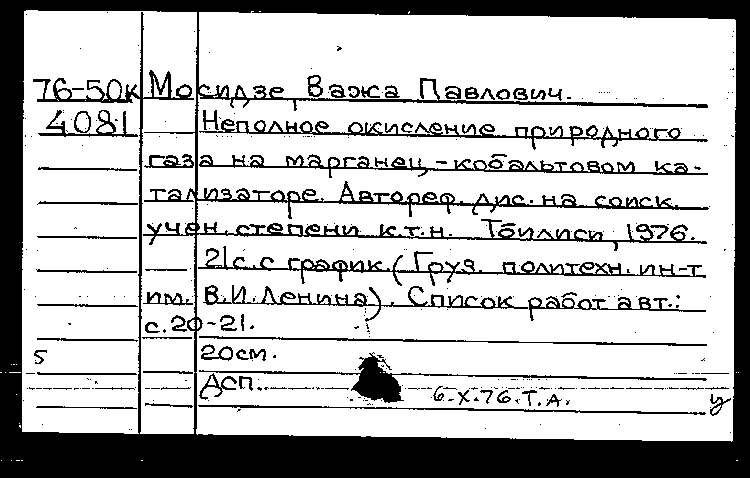 76-50к Мосидзе, Важа Павлович.
4081 Неполное окисление природного
газа на марганец,-кобальтовом ка-
тализаторе. Автореф. дис. на соиск.
учен. степени к.т.н. Тбилиси, 1976.
21с. с график. (Груз. политехн. ин-т
им. В.И. Ленина). Список работ авт.:
с. 20-21.
5 20см.
Дсп.
6.X.76.Т.А. у